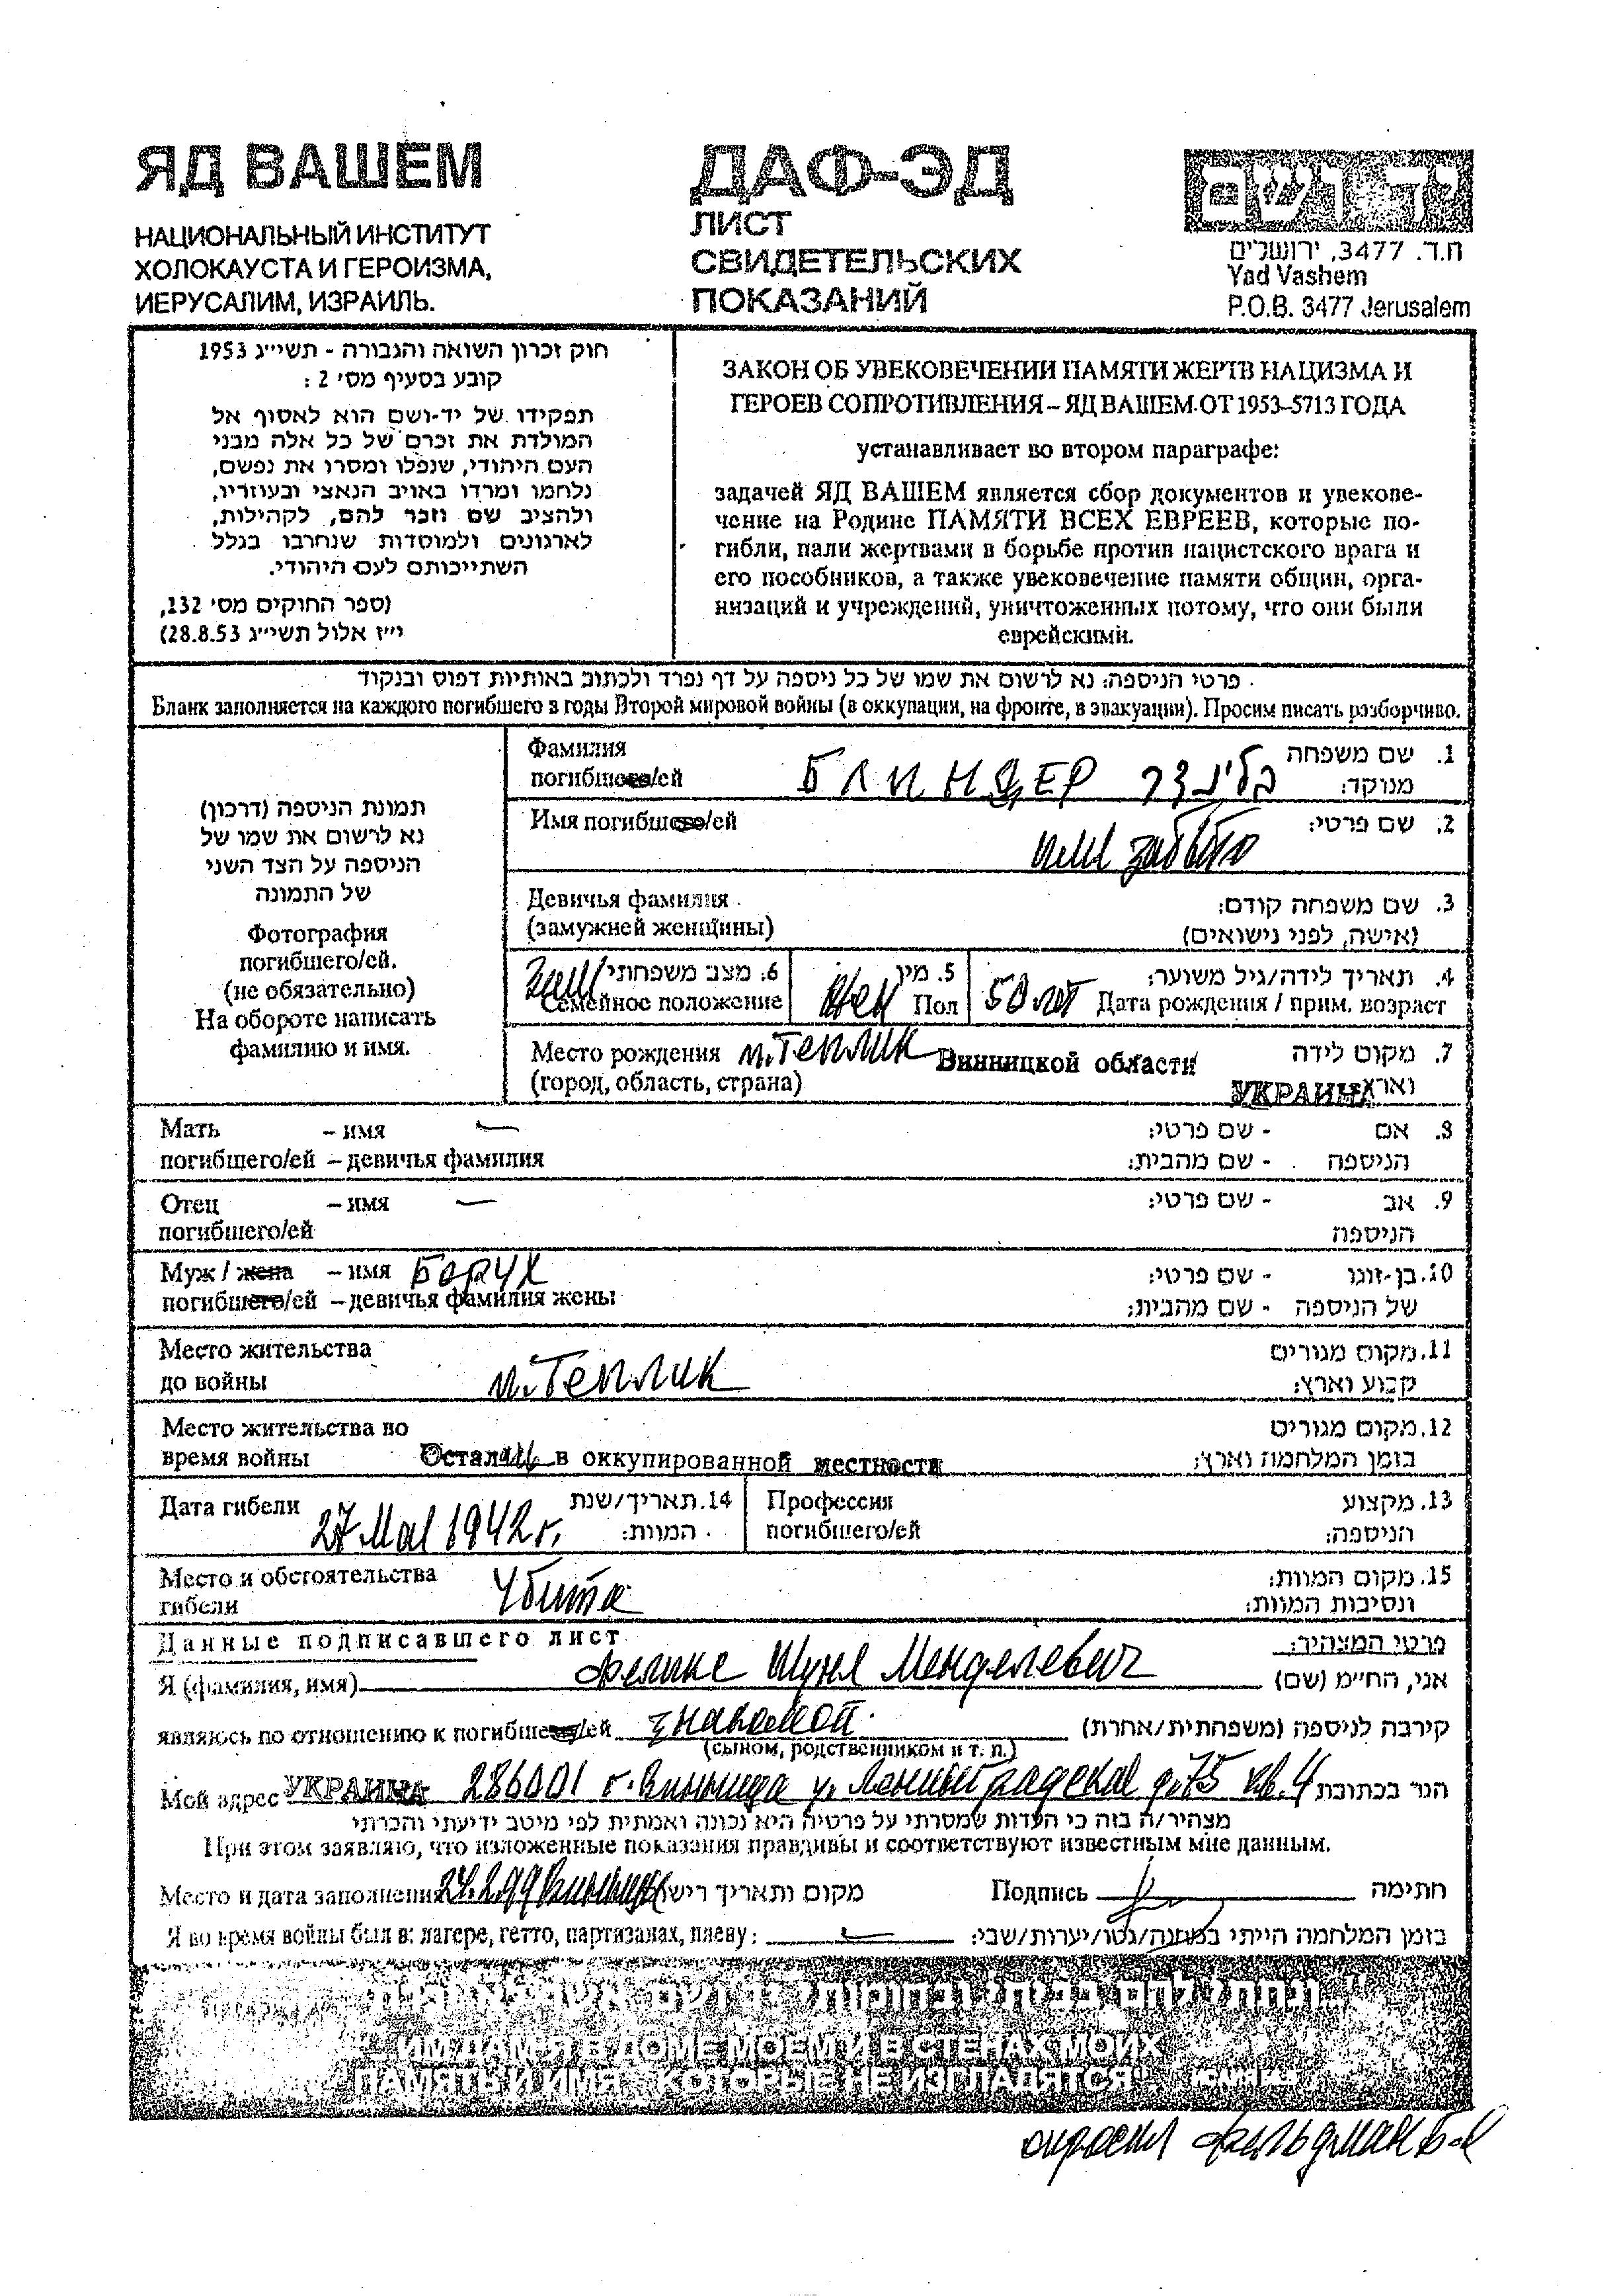 ЯД ВАШЕМ
НАЦИОНАЛЬНЫЙ ИНСТИТУТ
ХОЛОКАУСТА И ГЕРОИЗМА,
ИЕРУСАЛИМ, ИЗРАИЛЬ.
ДАФ-ЭД
ЛИСТ
СВИДЕТЕЛЬСКИХ
ПОКАЗАНИЙ
יד ושם
ת.ד. 3477, ירושלים
Yad Vashem
P.O.B. 3477 Jerusalem
חוק זכרון השואה והגבורה - תשי״ג 1953
קובע בסעיף מס׳ 2 :
תפקידו של יד-ושם הוא לאסוף אל
המולדת את זכרם של כל אלה מבני
העם היהודי, שנפלו ומסרו את נפשם,
נלחמו ומרדו באויב הנאצי ובעוזריו,
ולהציב שם וזכר להם, לקהילות,
לארגונים ולמוסדות שנחרבו בגלל
השתייכותם לעם היהודי.
(ספר החוקים מס׳ 132,
י״ז אלול תשי״ג 28.8.53)
ЗАКОН ОБ УВЕКОВЕЧЕНИИ ПАМЯТИ ЖЕРТВ НАЦИЗМА И
ГЕРОЕВ СОПРОТИВЛЕНИЯ – ЯД ВАШЕМ ОТ 1953–5713 ГОДА
устанавливает во втором параграфе:
задачей ЯД ВАШЕМ является сбор документов и увекове-
чение на Родине ПАМЯТИ ВСЕХ ЕВРЕЕВ, которые по-
гибли, пали жертвами в борьбе против нацистского врага и
его пособников, а также увековечение памяти общин, орга-
низаций и учреждений, уничтоженных потому, что они были
еврейскими.
פרטי הניספה: נא לרשום את שמו של כל ניספה על דף נפרד ולכתוב באותיות דפוס ובנקוד.
Бланк заполняется на каждого погибшего в годы Второй мировой войны (в оккупации, на фронте, в эвакуации). Просим писать разборчиво.
תמונת הניספה (דרכון)
נא לרשום את שמו של
הניספה על הצד השני
של התמונה
Фотография
погибшего/ей.
(не обязательно)
На обороте написать
фамилию и имя.
Фамилия 1. שם משפחה
погибшего/ей БЛИНДЕР בלינדר מנוקד:
Имя погибшего/ей имя забыто 2. שם פרטי:
Девичья фамилия 3. שם משפחה קודם:
(замужней женщины) (אישה, לפני נישואים)
6. מצב משפחתי 5. מין 4. תאריך לידה/גיל משוער:
Семейное положение жен Пол 50 лет Дата рождения / прим. возраст
Место рождения м. Теплик Винницкой области 7. מקום לידה
(город, область, страна) УКРАИНА וארץ
Мать – имя — 8. אם - שם פרטי:
погибшего/ей – девичья фамилия הניספה - שם מהבית:
Отец – имя — 9. אב - שם פרטי:
погибшего/ей הניספה
Муж / жена – имя Борух 10. בן-זוגו - שם פרטי:
погибшего/ей – девичья фамилия жены של הניספה - שם מהבית:
Место жительства 11. מקום מגורים
до войны м. Теплик קבוע וארץ:
Место жительства во 12. מקום מגורים
время войны Осталась в оккупированной местности בזמן המלחמה וארץ:
Дата гибели 27 Мая 1942 г. 14. תאריך/שנת המוות:
Профессия 13. מקצוע
погибшего/ей הניספה:
Место и обстоятельства 15. מקום המוות:
гибели Убита ונסיבות המוות:
Данные подписавшего лист פרטי המצהיר:
Я (фамилия, имя) Фелике Шуня Менделевич אני, החי״מ (שם)
являюсь по отношению к погибшего/ей знакомой קירבה לניספה (משפחתית/אחרת)
(сыном, родственником и т. п.)
Мой адрес УКРАИНА 286001 г. Винница ул. Ленинградская д. 75 кв. 4 הגר בכתובת
מצהיר/ה בזה כי העדות שמסרתי על פרטיה היא נכונה ואמתית לפי מיטב ידיעתי והכרתי
При этом заявляю, что изложенные показания правдивы и соответствуют известным мне данным.
Место и дата заполнения Винница מקום ותאריך ריש Подпись חתימה
Я во время войны был в: лагере, гетто, партизанах, плену: — בזמן המלחמה הייתי במחנה/גטו/יערות/שבי:
"...ונתתי להם בביתי ובחומותי יד ושם אשר לא
ИМ ДАМ Я В ДОМЕ МОЕМ И В СТЕНАХ МОИХ
ПАМЯТЬ И ИМЯ... КОТОРЫЕ НЕ ИЗГЛАДЯТСЯ"
опросил Фельдман Б.